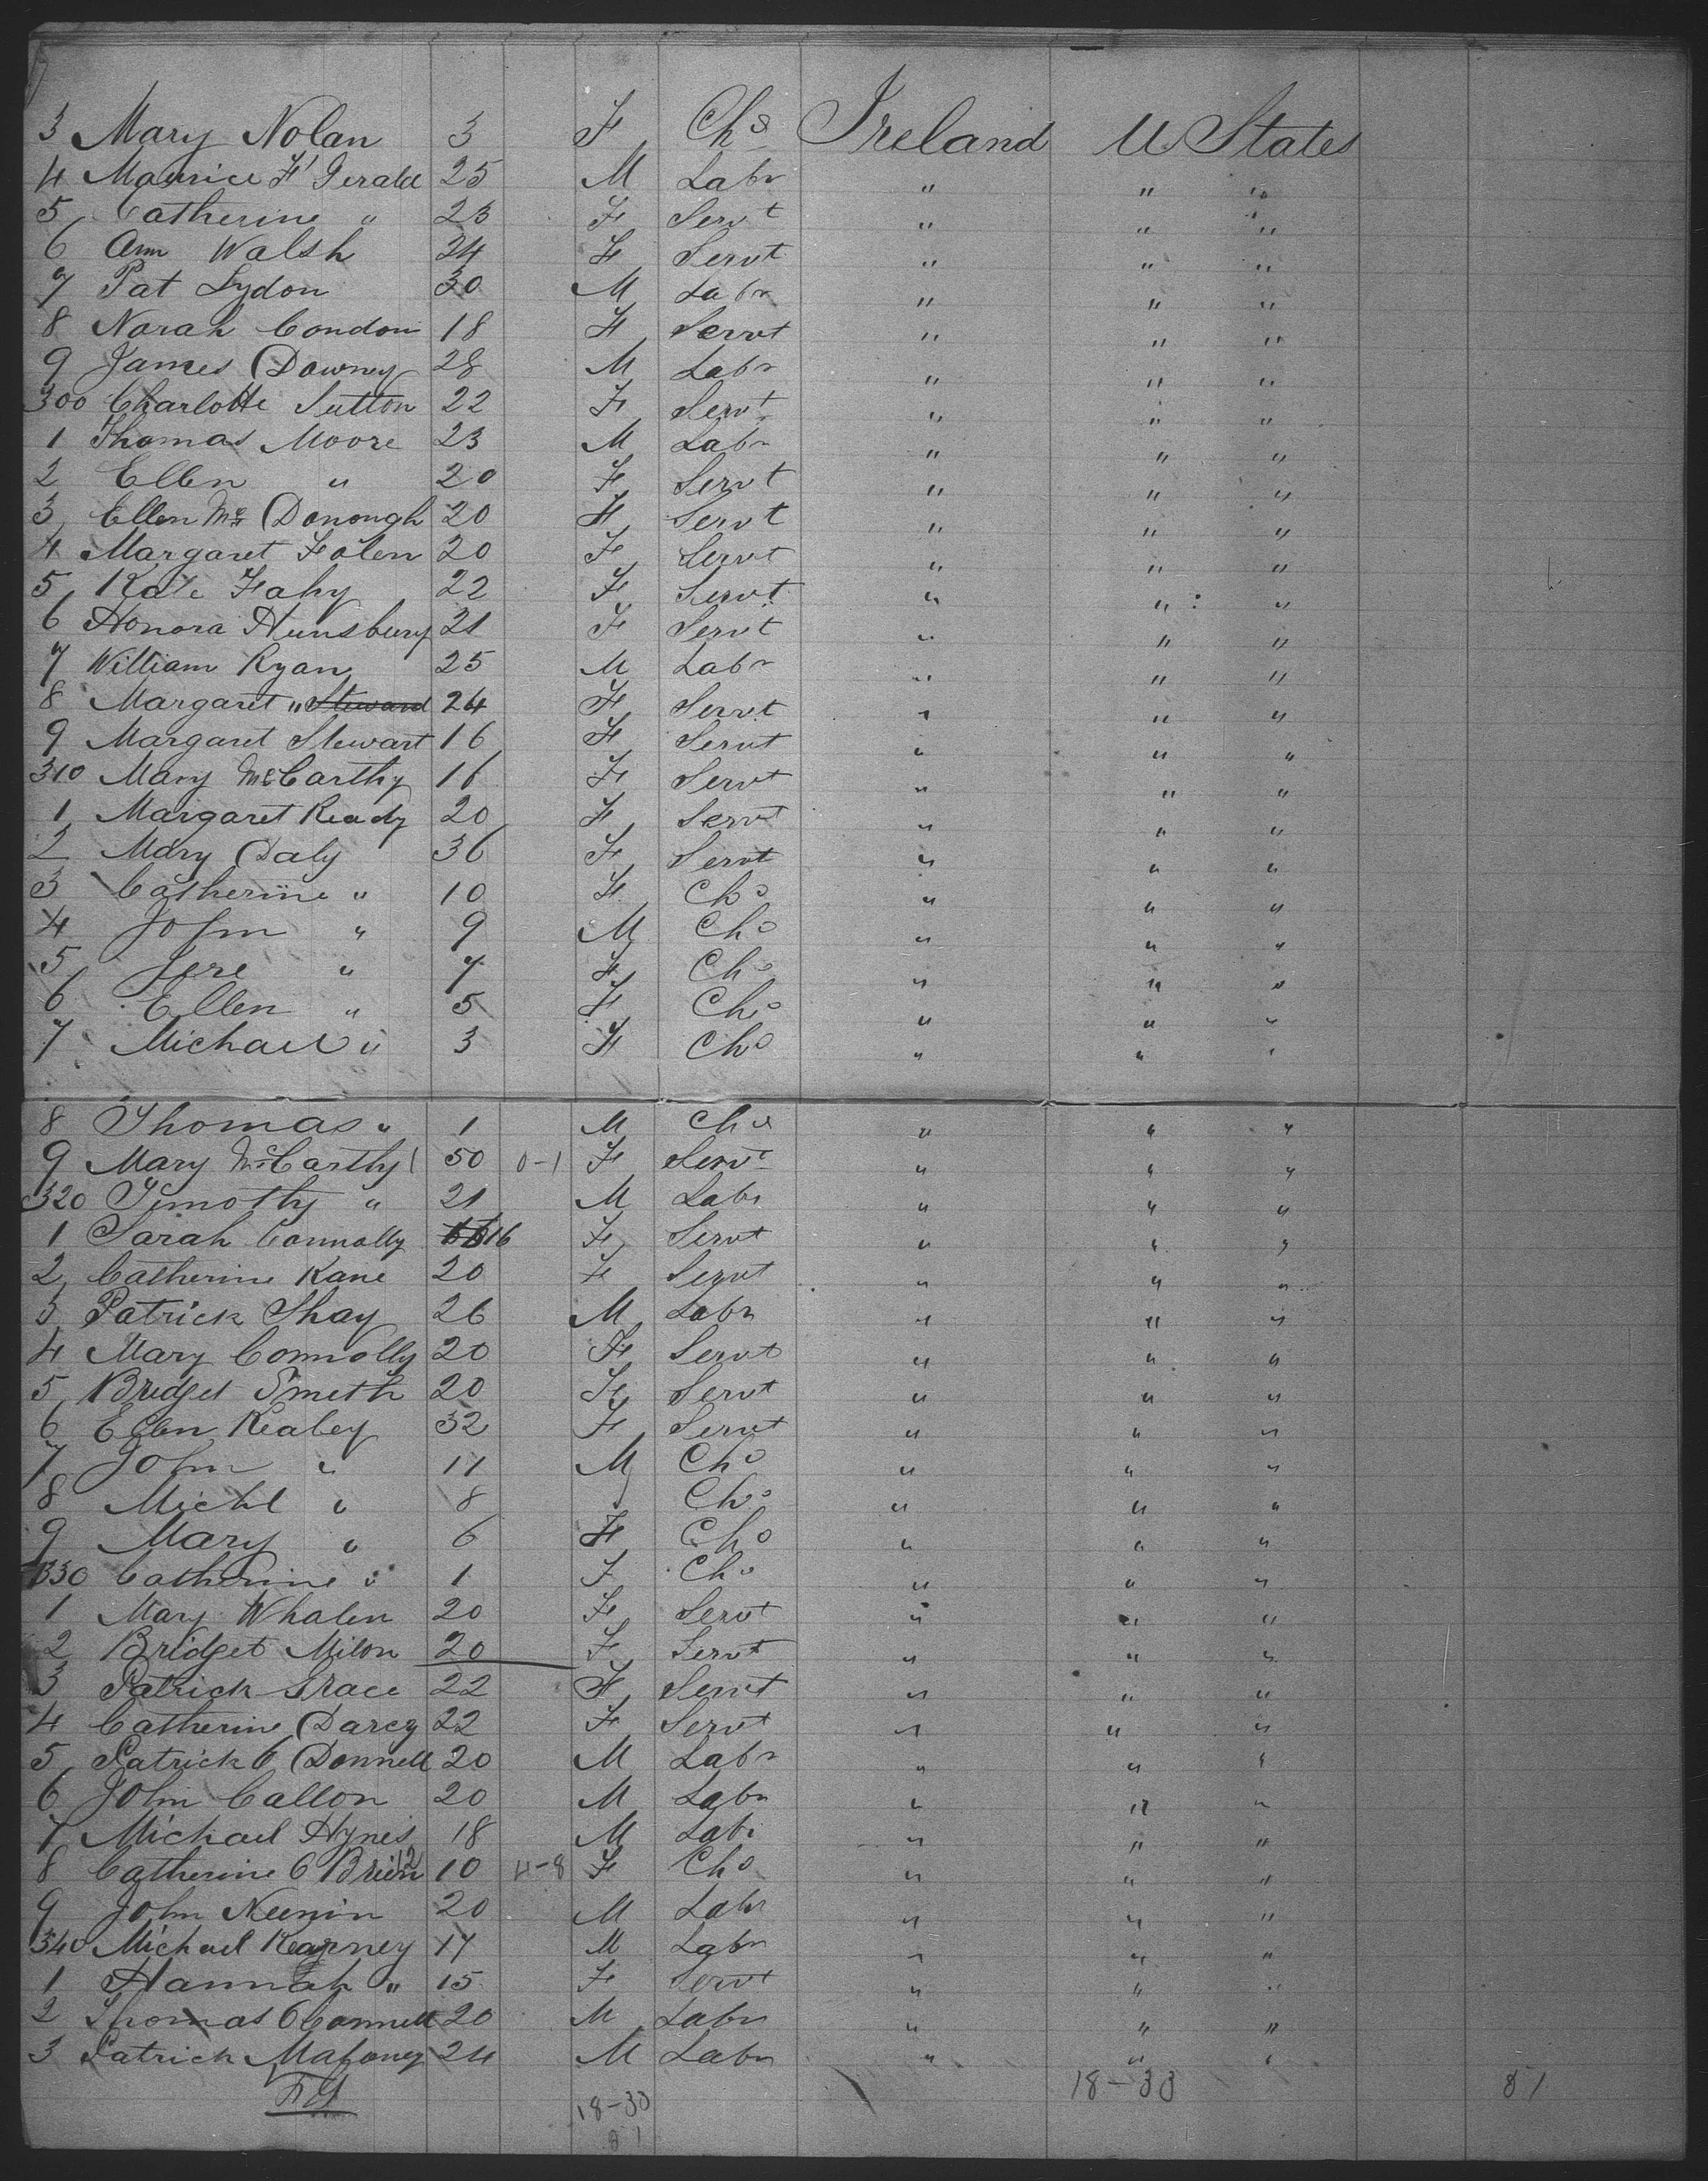 3 Mary Nolan 3 F Chd Ireland U States
4 Maurice F'Gerald 25 M Labr " " "
5 Catherine " 23 F Servt " " "
6 Ann Walsh 24 F Servt " " "
7 Pat Lydon 30 M Labr " " "
8 Norah Condon 18 F Servt " " "
9 James Downey 28 M Labr " " "
300 Charlotte Sutton 22 F Servt " " "
1 Thomas Moore 23 M Labr " " "
2 Ellen " 20 F Servt " " "
3 Ellen Mc Donough 20 F Servt " " "
4 Margaret Folen 20 F Servt " " "
5 Kate Fahy 22 F Servt " " "
6 Honora Hunsbury 21 F Servt " " "
7 William Ryan 25 M Labr " " "
8 Margaret " Steward 24 F Servt " " "
9 Margaret Stewart 16 F Servt " " "
310 Mary McCarthy 16 F Servt " " "
1 Margaret Ready 20 F Servt " " "
2 Mary Daly 36 F Servt " " "
3 Catherine " 10 F Chd " " "
4 John " 9 M Chd " " "
5 Jere " 7 F Chd " " "
6 Ellen " 5 F Chd " " "
7 Michael " 3 F Chd " " "
8 Thomas " 1 M Chd " " "
9 Mary McCarthy 50 0-1 F Servt " " "
320 Timothy " 21 M Labr " " "
1 Sarah Connolly 16 F Servt " " "
2 Catherine Kane 20 F Servt " " "
3 Patrick Shay 26 M Labr " " "
4 Mary Connolly 20 F Servt " " "
5 Bridget Smeth 20 F Servt " " "
6 Ellen Kealey 32 F Servt " " "
7 John " 11 M Chd " " "
8 Michl " 8 " Chd " " "
9 Mary " 6 F Chd " " "
330 Catherine " 1 F Chd " " "
1 Mary Whalen 20 F Servt " " "
2 Bridget Milon 20 F Servt " " "
3 Patrick Grace 22 F Servt " " "
4 Catherine Darcy 22 F Servt " " "
5 Patrick O Donnell 20 M Labr " " "
6 John Callon 20 M Labr " " "
7 Michael Hynes 18 M Labr " " "
8 Catherine O Brien 12 10 4-8 F Chd " " "
9 John Neenin 20 M Labr " " "
340 Michael Kearney 17 M Labr " " "
1 Hannah " 15 F Servt " " "
2 Thomas O Connell 20 M Labr " " "
3 Patrick Mahoney 24 M Labr " " "
18-33 81
18-30
81